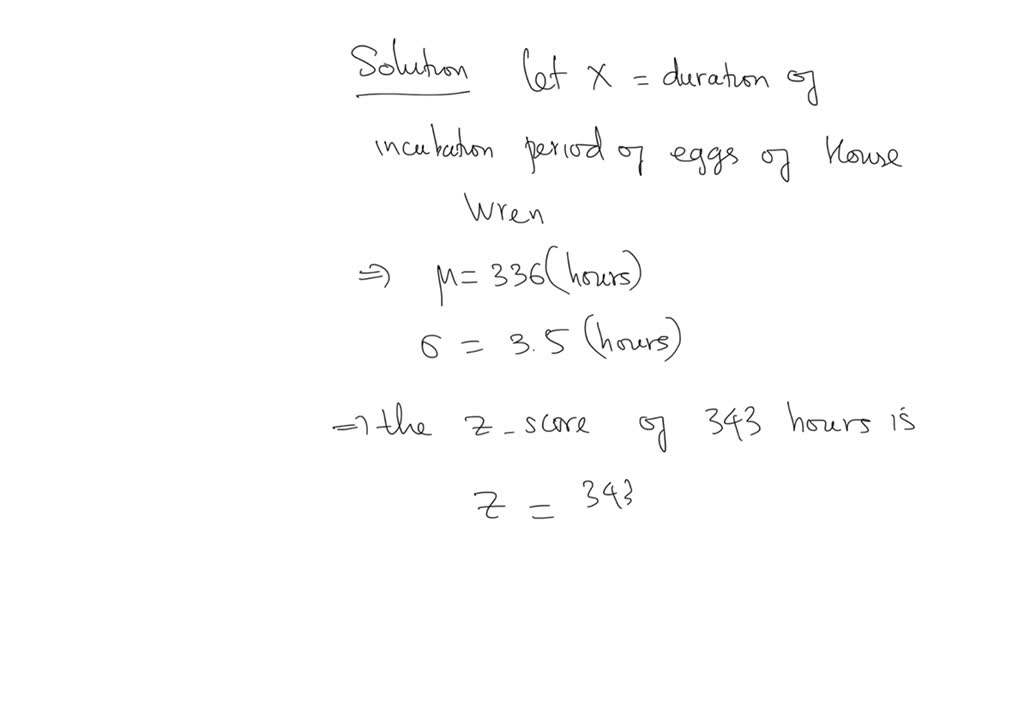 Solution Let X = duration of
incubation period of eggs of House
Wren
⇒ μ = 336 (hours)
σ = 3.5 (hours)
⇒ the z-score of 343 hours is
z = 343